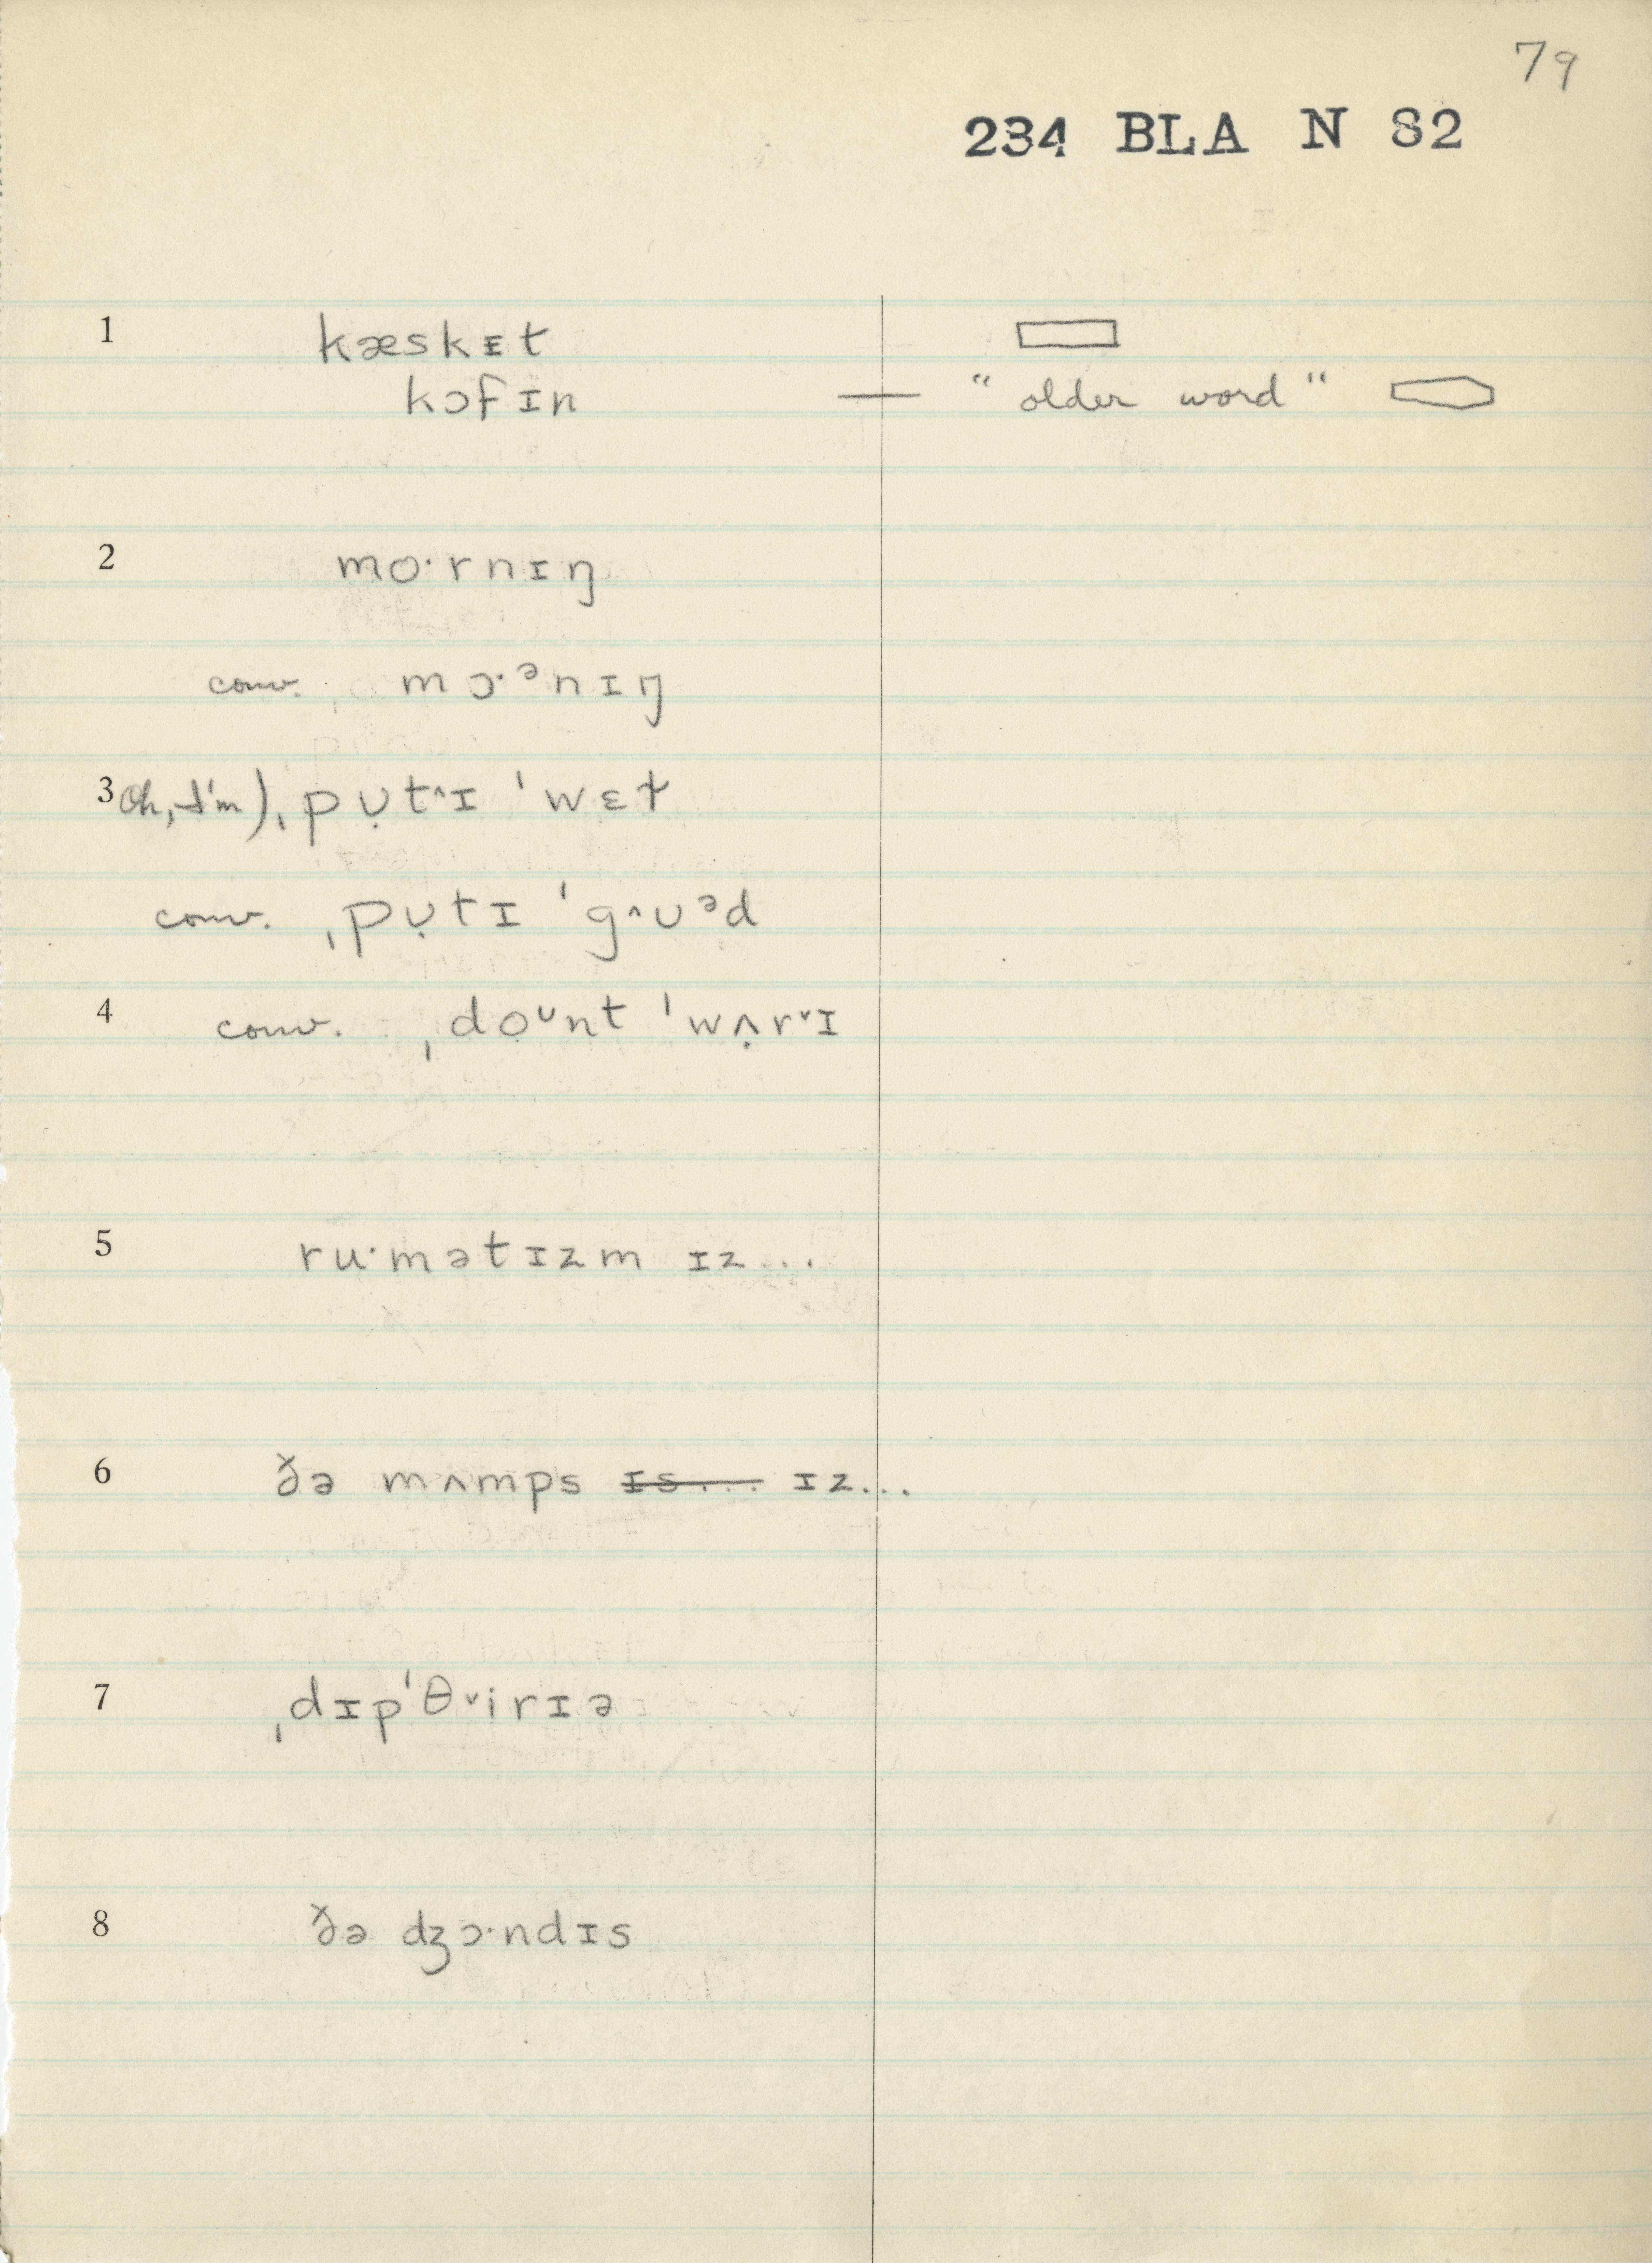 79
234 BLA N 82
1 kæskɪt
kɔfɪn — "older word"
2 mo·rnɪŋ
conv. mɔ·ᵊnɪŋ
3 Oh, I'm) ˌpụt˄ɪ ˈwɛt̬
conv. ˌpụtɪ ˈg˄ʊᵊd
4 conv. ˌdoᶷnt ˈwʌ̣r˅ɪ
5 ru·mətɪzm ɪz...
6 ðə mʌmps ɪs... ɪz...
7 ˌdɪpˈθ˅irɪə
8 ðə ʤɔ·ndɪs